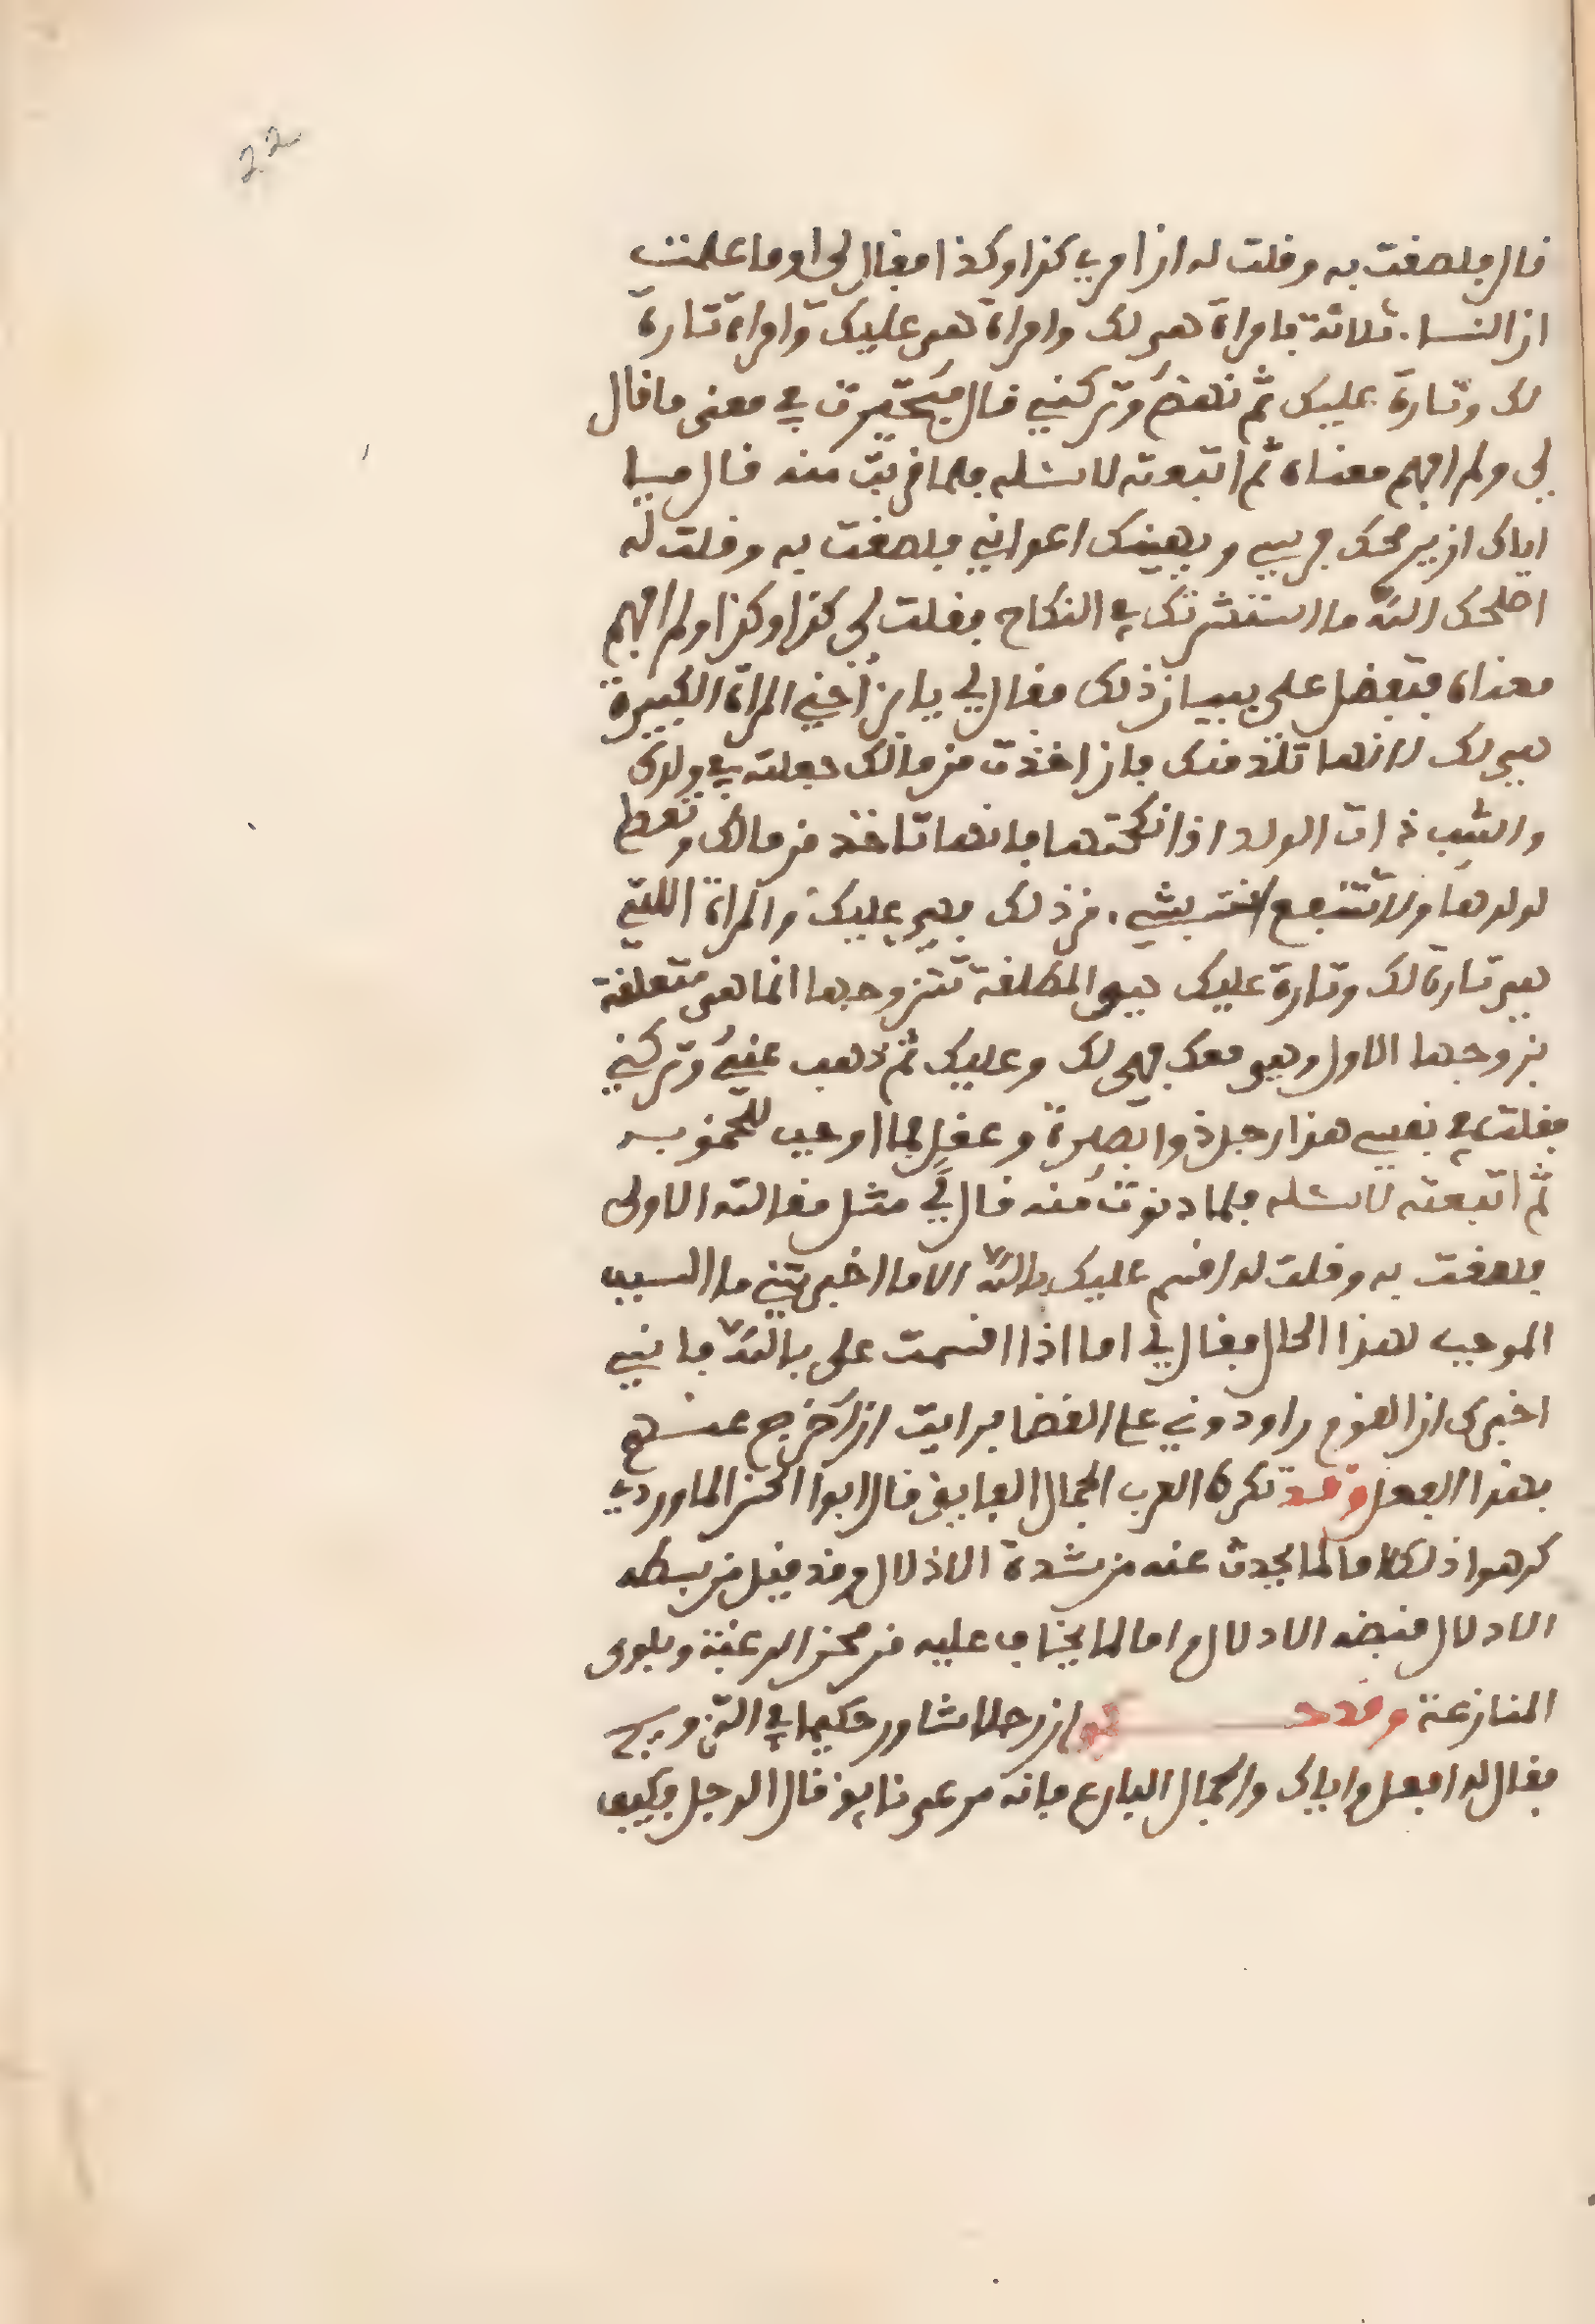 22
قال فلصقت به وقلت له ان امري كذا وكذا فقال لي اوما علمت
ان النسا ثلاثة فامراة هي لك وامراة هي عليك وامراة تارة
لك وتارة عليك ثم نهض وتركني قال فتحيرت في معنى ما قال
لي ولم افهم معناه ثم اتبعته لاسئله فلما قربت منه قال
اياك ان يرمحك فرسي ويهينك اعواني فلصقت به وقلت له
اصلحك الله ما استشرتك في النكاح فقلت لي كذا وكذا ولم افهم
معناه فتفضل علي ببيان ذلك فقال لي يابن اخي المراة الكبيرة
هي لك لانها تلذ منك فان اخذت من مالك جعلته في ولدك
والثيب ذات الولد اذا نكحتها فانها تاخذ من مالك وتعط
لولدها ولا تنتفع انت بشي من ذلك فهي عليك والمراة اللتي
هي تارة لك وتارة عليك هي المطلقة تتزوجها انما هي متعلقة
بزوجها الاول وهي معك فهي لك وعليك ثم ذهب عني وتركني
فقلت في نفسي هذا رجل ذوا بصيرة وعقل فما اوجب
ثم اتبعته لاسئله فلما دنوت منه قال لي مثل مقالته الاولى
فلصقت به وقلت له اقسم عليك بالله الا ما اخبرتني ما السبب
الموجب لهذا الحال فقال لي اما اذا اقسمت علي بالله فانني
اخبرك ان القوم راودوني على القضا فرايت ان اخرج عنهم
بهذا الفعل وقد تكره العرب الجمال الفايق قال ابوا الحسن الماوردي
كرهوا ذلك اما لما يحدث عنه من شدة الاذلال وقد قيل من بسطه
الادلال قبضه الاذلال واما لما يخاف عليه من محن الرغبة وبلوى
المنازعة وقد ان رجلا شاور حكيما في التزويج
فقال له افعل واياك والجمال البارع فانه مرعى نايق قال الرجل وكيف